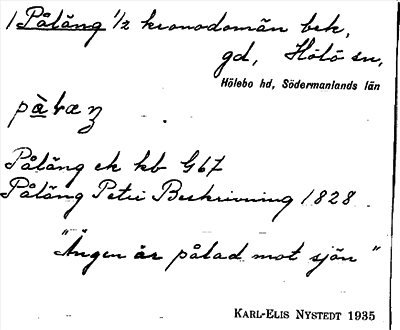 1 Påläng 1/2 kronodomän bek,
gd, Hölö sn,
Hölebo hd, Södermanlands län
Påläng ek kb G67
Påläng Petri Beskrivning 1828
"Ängen är pålad mot sjön"
KARL-ELIS NYSTEDT 1935